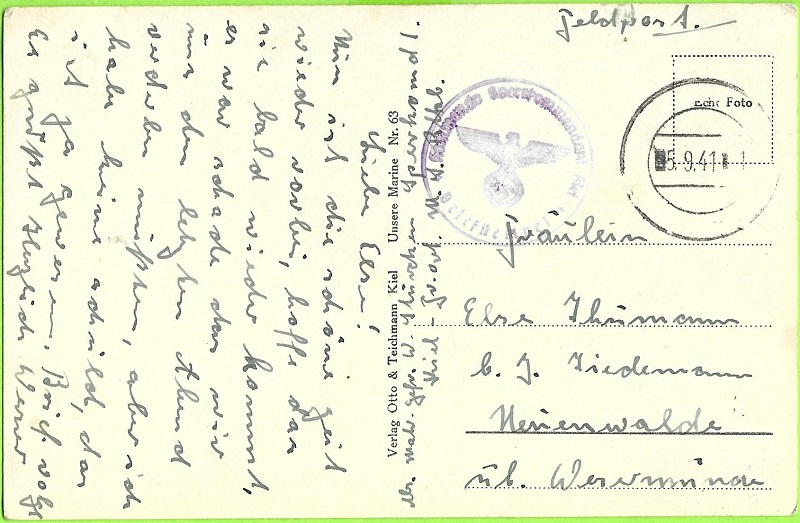 Feldpost.
Foto
5.9.41
Fräulein
Else Thumann
b. J. Tiedemann
Neuenwalde
üb. Wesermünde
Verlag Otto & Teichmann Kiel Unsere Marine Nr. 63
Gefr. W.
Kiel
Liebe Else!
Nun ist die schöne Zeit
wieder vorbei, hoffe das
sie bald wieder kommt,
es war schade das wir
uns den letzten Abend
verderben mußten, aber ich
habe keine schuld, das
ist ja gewesen. Brief volgt
Es grüßt Herzlich Werner